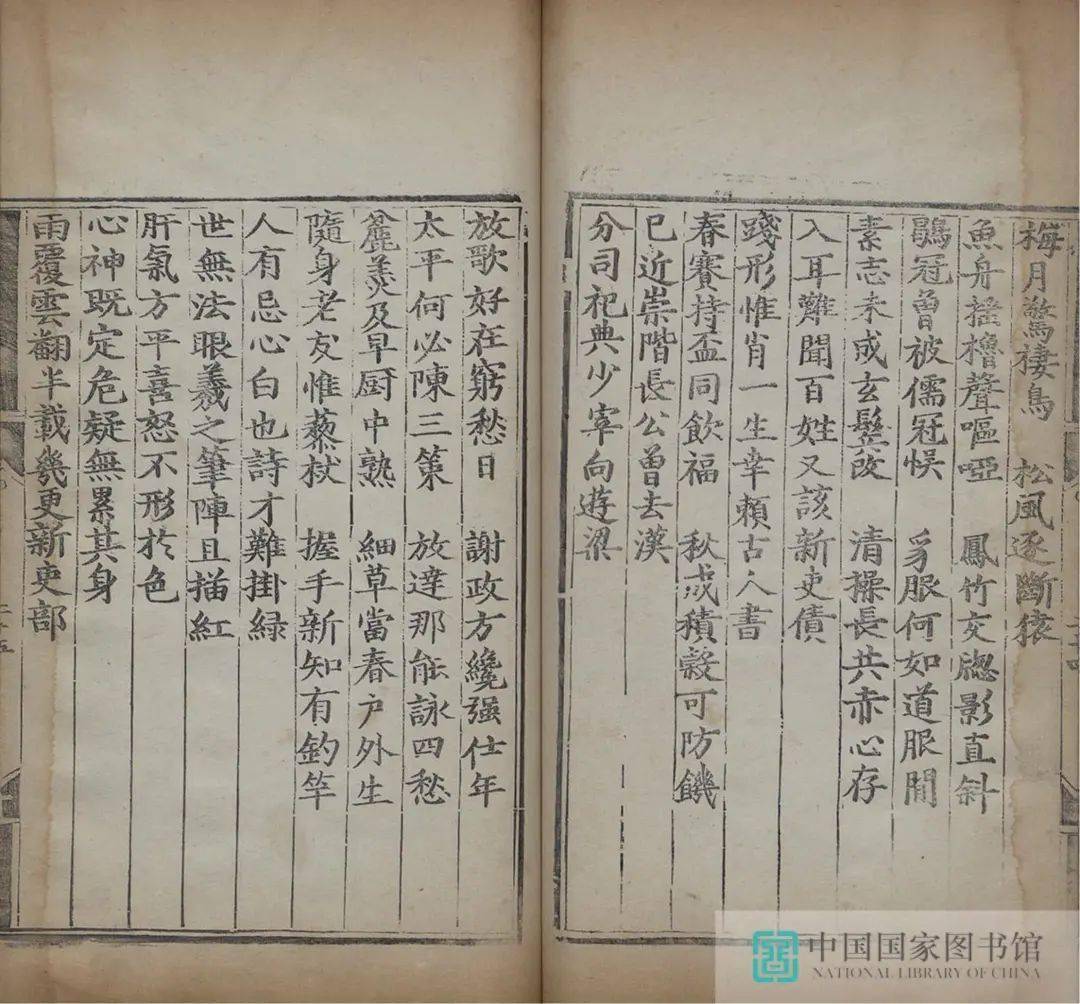 梅月驚棲鳥　松風逐斷猿
魚舟搖櫓聲嘔啞　鳳竹交牕影直斜
鶡冠曾被儒冠悞　豸服何如道服閒
素志未成玄鬂改　清操長共赤心存
入耳難聞百姓又該新吏債
踐形惟肖一生幸賴古人書
春賽持盃同飲福　秋成積穀可防饑
已近崇階長公曾去漢
分司祀典少宰向遊梁
放歌好在窮愁日　謝政方纔强仕年
太平何必陳三策　放達那能詠四愁
麄羙及早厨中熟　細草當春户外生
隨身老友惟藜杖　握手新知有釣竿
人有忌心白也詩才難掛緑
世無法眼羲之筆陣且描紅
肝氣方平喜怒不形於色
心神既定危疑無累其身
雨覆雲翻半載幾更新吏部
二十五
中国国家图书馆
NATIONAL LIBRARY OF CHINA